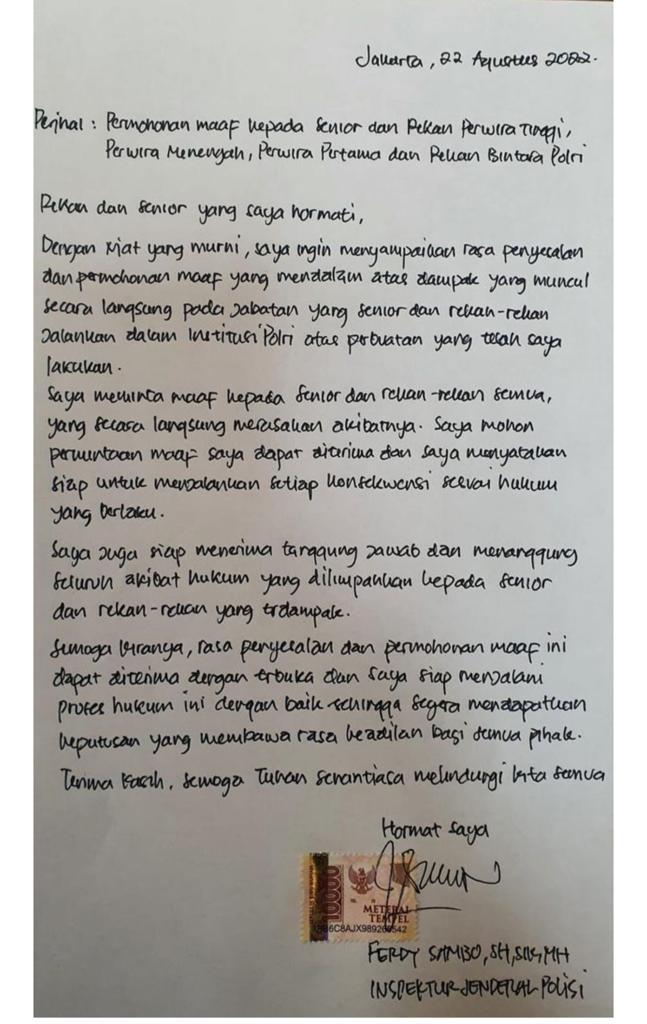 Jakarta, 22 Agustus 2022.
Perihal : Permohonan maaf kepada Senior dan Rekan Perwira Tinggi,
Perwira Menengah, Perwira Pertama dan Rekan Bintara Polri
Rekan dan Senior yang saya hormati,
Dengan niat yang murni, saya ingin menyampaikan rasa penyesalan
dan permohonan maaf yang mendalam atas dampak yang muncul
secara langsung pada Jabatan yang senior dan rekan-rekan
Jalankan dalam Institusi Polri atas perbuatan yang telah saya
lakukan.
Saya meminta maaf kepada Senior dan rekan-rekan semua,
yang secara langsung merasakan akibatnya. Saya mohon
permintaan maaf saya dapat diterima dan saya menyatakan
siap untuk menjalankan setiap konsekwensi sesuai hukum
yang berlaku.
Saya Juga siap menerima tanggung Jawab dan menanggung
seluruh akibat hukum yang dilimpahkan kepada senior
dan rekan-rekan yang terdampak.
Semoga kiranya, rasa penyesalan dan permohonan maaf ini
dapat diterima dengan terbuka dan saya siap menjalani
proses hukum ini dengan baik sehingga segera mendapatkan
keputusan yang membawa rasa keadilan bagi semua pihak.
Terima kasih, semoga Tuhan senantiasa melindungi kita semua
Hormat saya
10000
METERAI
TEMPEL
FERDY SAMBO, SH, SIK, MH
INSPEKTUR JENDERAL POLISI